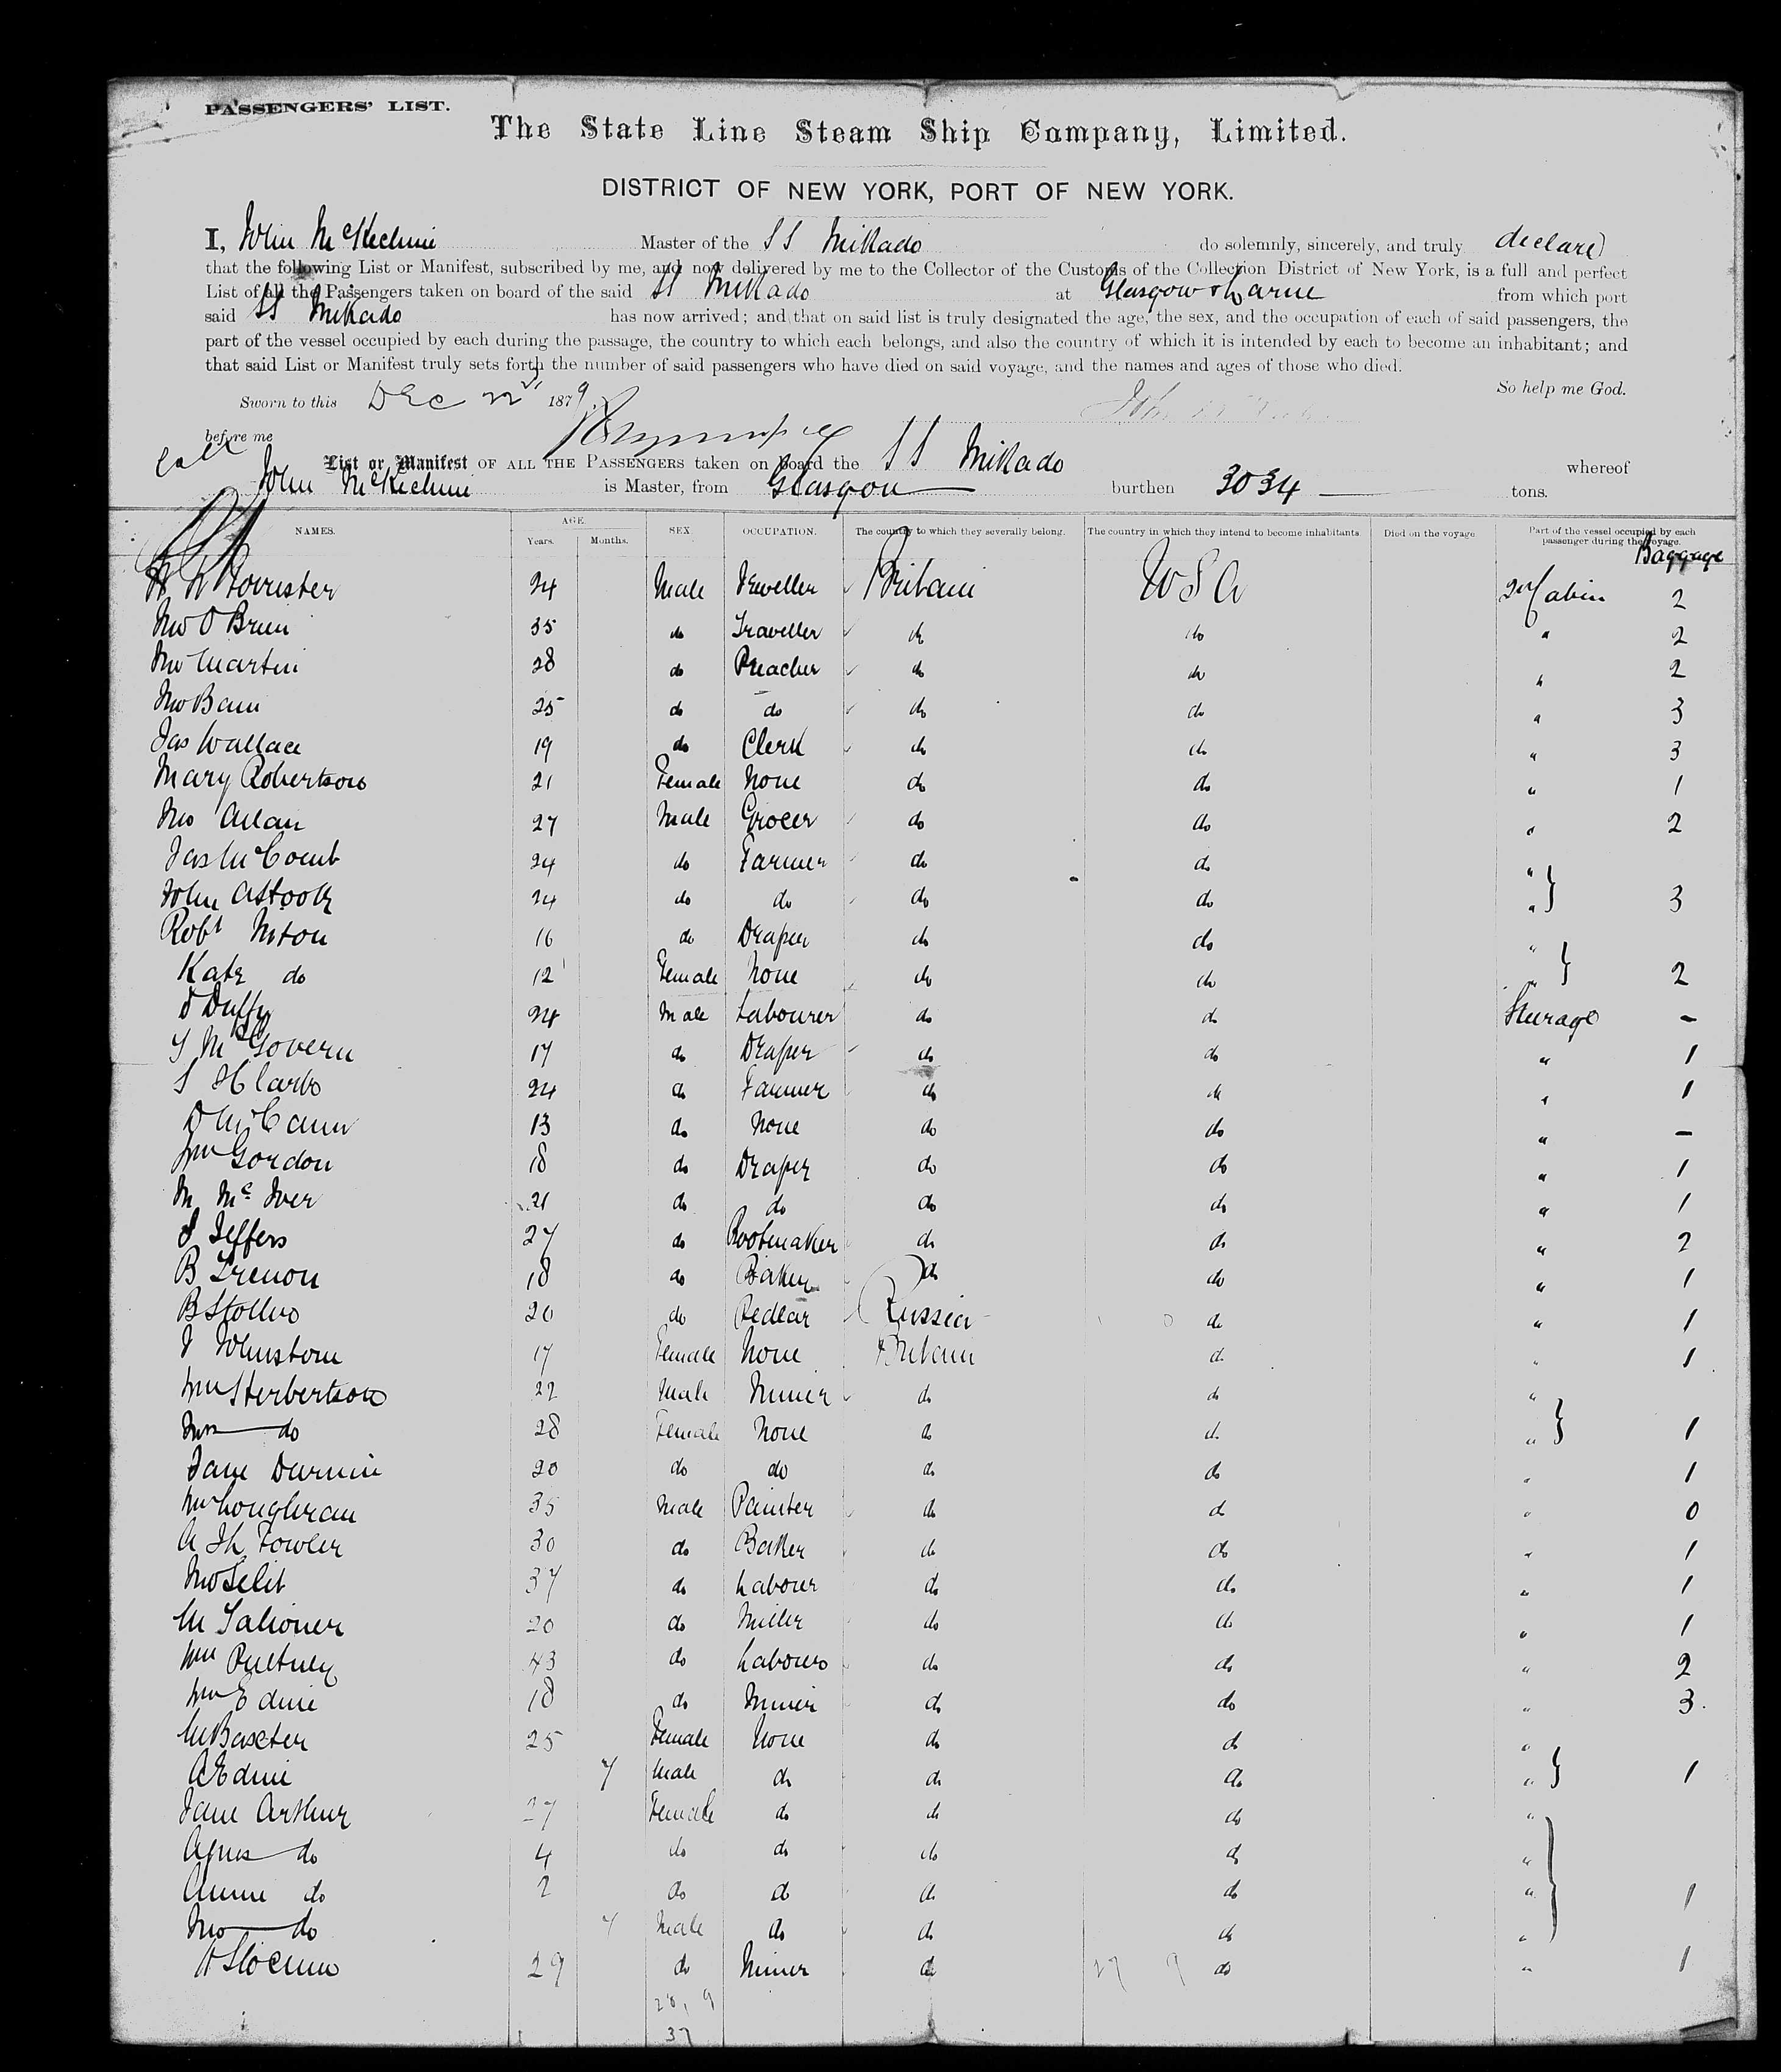 PASSENGERS' LIST.
The State Line Steam Ship Company, Limited.
DISTRICT OF NEW YORK, PORT OF NEW YORK.
I, John McKechnie Master of the SS Mikado do solemnly, sincerely, and truly declare
that the following List or Manifest, subscribed by me, and now delivered by me to the Collector of the Customs of the Collection District of New York, is a full and perfect
List of all the Passengers taken on board of the said SS Mikado at Glasgow & Larne from which port
said SS Mikado has now arrived; and that on said list is truly designated the age, the sex, and the occupation of each of said passengers, the
part of the vessel occupied by each during the passage, the country to which each belongs, and also the country of which it is intended by each to become an inhabitant; and
that said List or Manifest truly sets forth the number of said passengers who have died on said voyage, and the names and ages of those who died.
So help me God.
Sworn to this Dec 22 1879
before me
List or Manifest OF ALL THE PASSENGERS taken on board the SS Mikado whereof
John McKechnie is Master, from Glasgow burthen 3034 tons.
NAMES. AGE. Years. Months. SEX. OCCUPATION. The country to which they severally belong. The country in which they intend to become inhabitants. Died on the voyage. Part of the vessel occupied by each passenger during the voyage. Baggage
Forrester 24 Male Jeweller Britain USA Cabin 2
Jno O'Brien 35 do Traveller do do " 2
Jno Martin 28 do Preacher do do " 2
Jno Bain 25 do do do do " 3
Jas Wallace 19 do Clerk do do " 3
Mary Robertson 21 Female None do do " 1
Jno Allan 27 Male Grocer do do " 2
Jas McComb 24 do Farmer do do "
John 24 do do do do " 3
Robt 16 do Draper do do "
Kate do 12 Female None do do " 2
Duffy 24 Male Labourer do do Steerage -
McGovern 17 do Draper do do " 1
S 24 do Farmer do do " 1
D McCann 13 do None do do " -
Wm Gordon 18 do Draper do do " 1
M McIver 21 do do do do " 1
Jeffers 27 do Bootmaker do do " 2
B 18 do Baker do do " 1
B 20 do Pedlar Russia do " 1
J Johnstone 17 Female None Britain do " 1
Wm Herbertson 22 Male Miner do do "
Mrs do 28 Female None do do " 1
Jane 20 do do do do " 1
35 Male Painter do do " 0
Fowler 30 do Baker do do " 1
Jno 37 do Labour do do " 1
M 20 do Miller do do " 1
Wm Pultney 43 do Labour do do " 2
Wm Edine 18 do Miner do do " 3
M Baxter 25 Female None do do "
A Edine 7 Male do do do " 1
Jane Arthur 27 Female do do do "
Agnes do 4 do do do do "
Annie do 2 do do do do " 1
Jno do 7 Male do do do "
Slocum 29 do Miner do 27 9 do " 1
28, 9
37